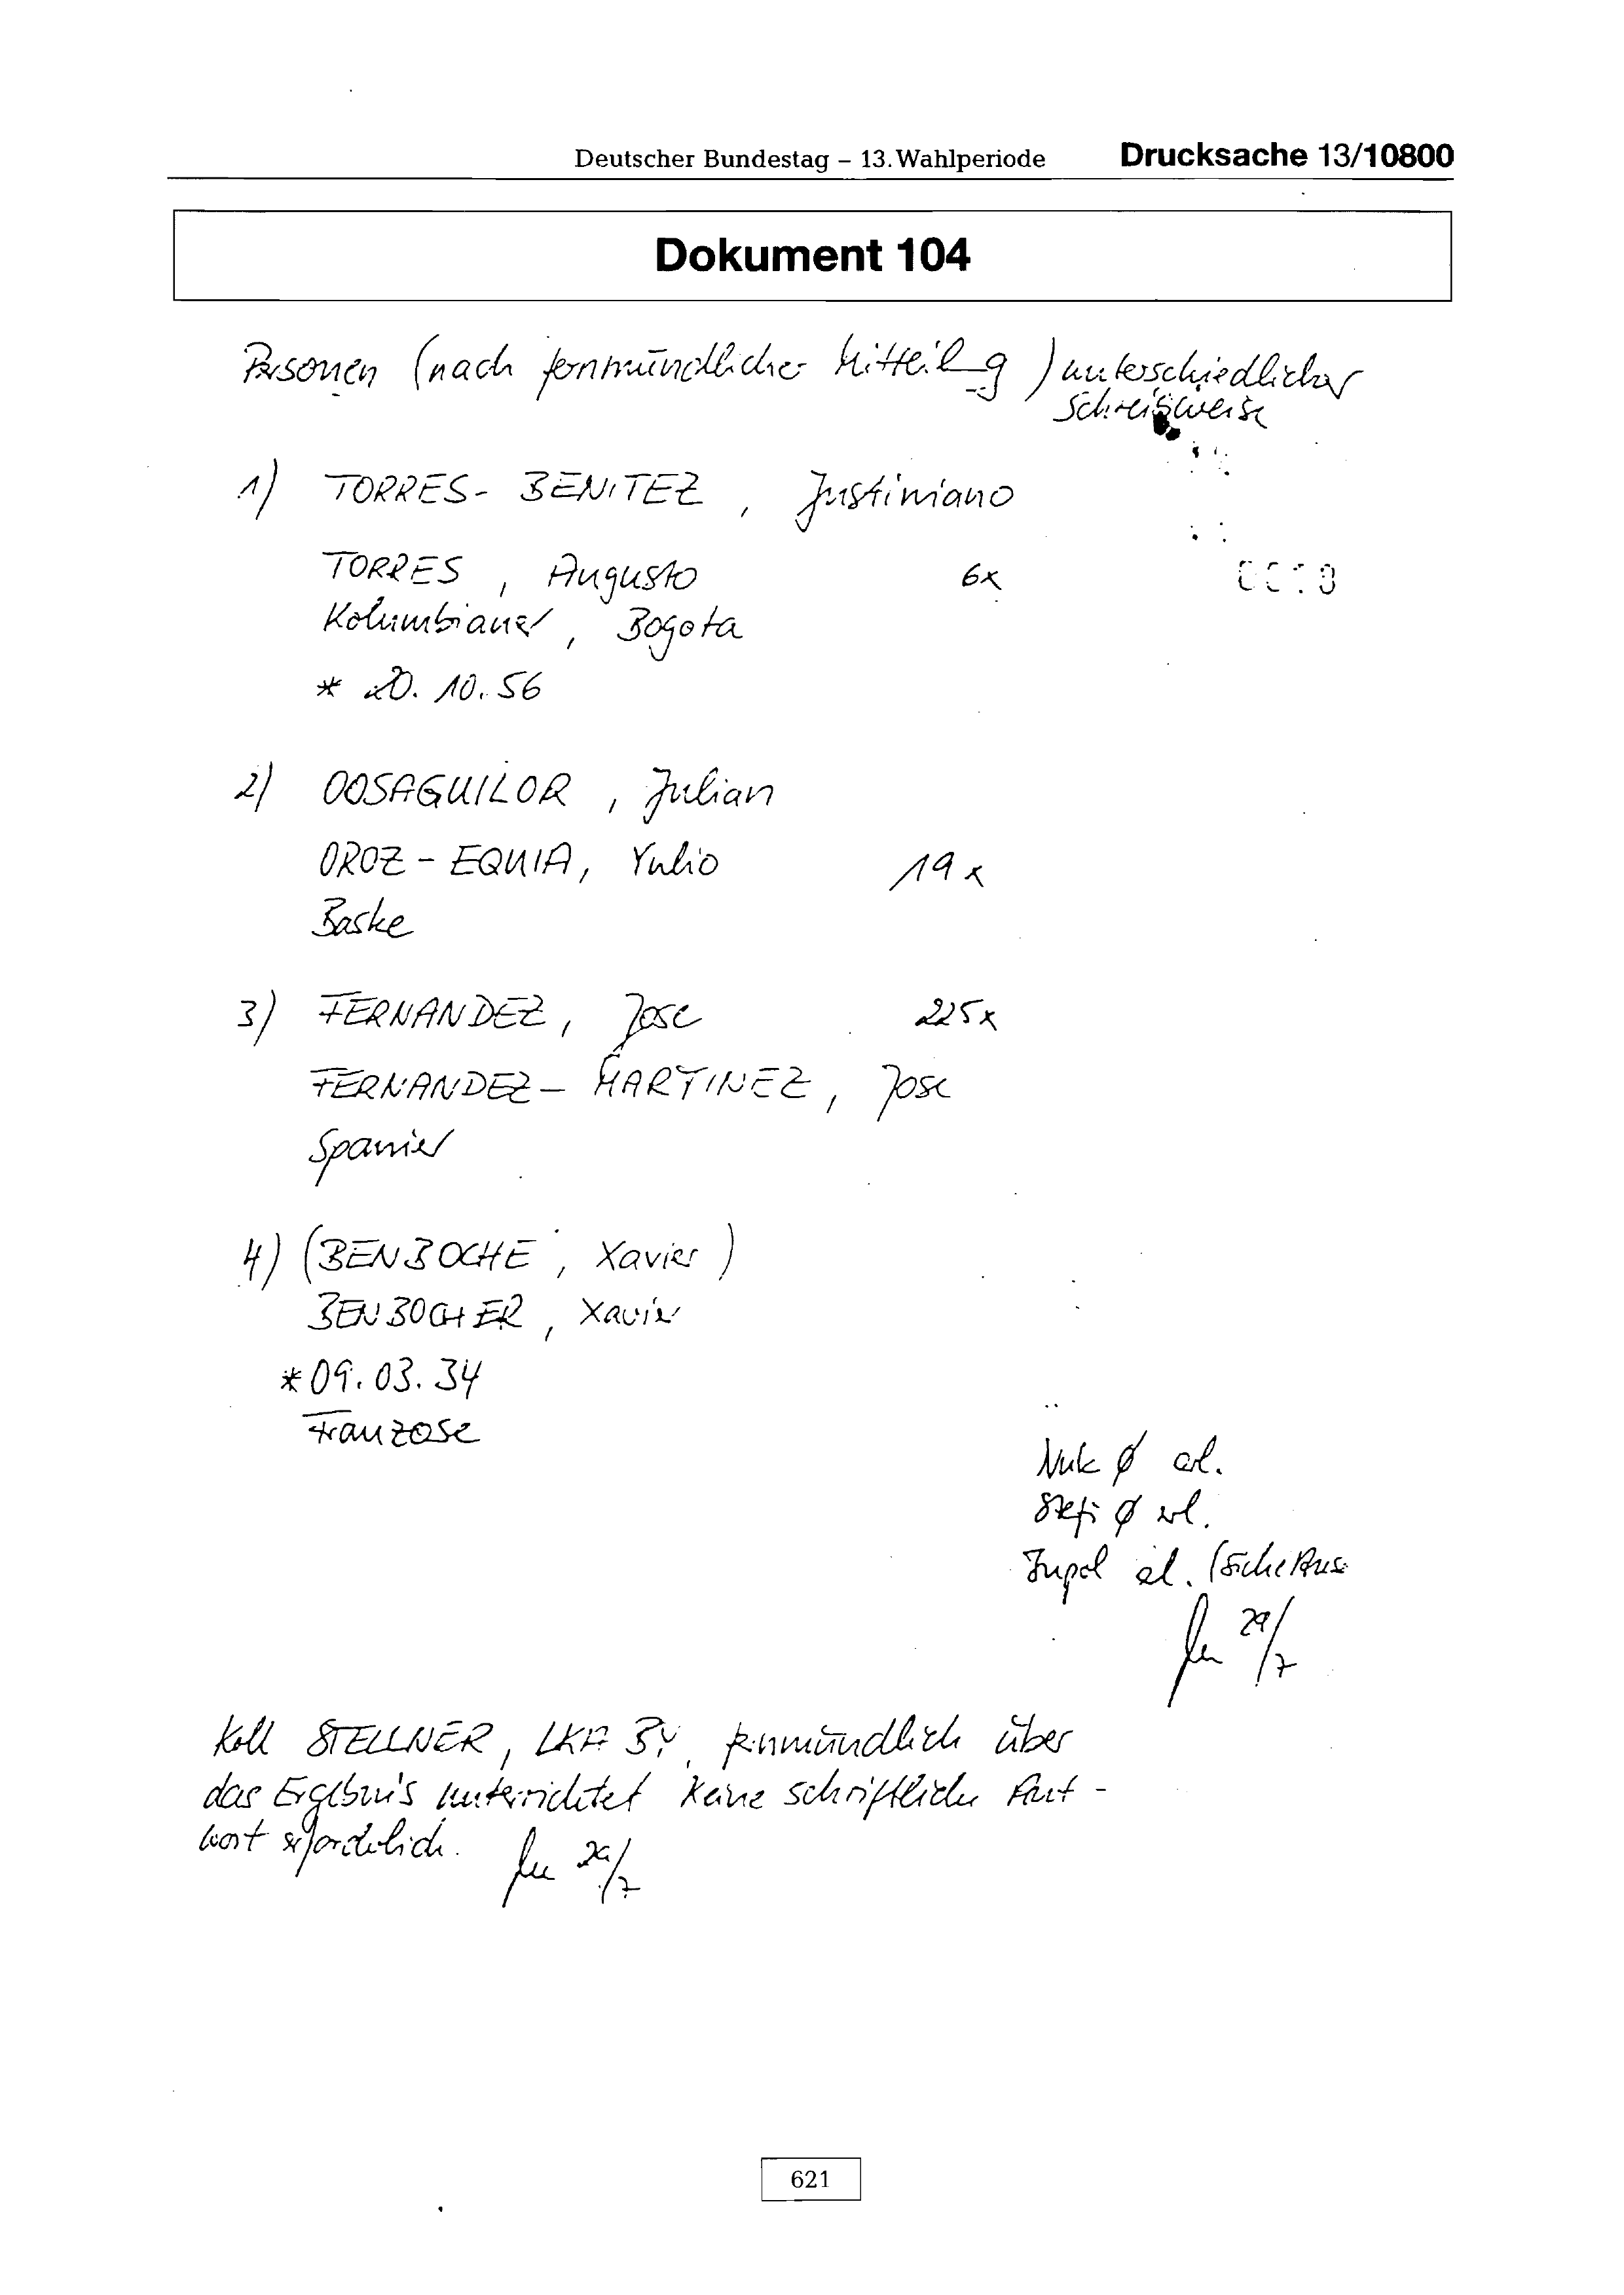 Deutscher Bundestag – 13. Wahlperiode Drucksache 13/10800
Dokument 104
Personen (nach fernmündlicher Mitteil_g) unterschiedlicher
Schreibweise
1) TORRES- BENITEZ, Justiniano
TORRES, Augusto 6x
Kolumbianer, Bogota
* 20.10.56
2) OOSAGUILOR, Julian
OROZ - EQUIA, Yulio 19x
Baske
3) FERNANDEZ, Jose 225x
FERNANDEZ - MARTINEZ, Jose
Spanier
4) (BENBOCHE, Xavier)
BENBOCHER, Xavier
* 09.03.34
Franzose
Nuk Ø
Ø
Inpol
29/7
Koll STELLNER, LKA BY, fernmündlich über
das Ergebnis unterrichtet keine schriftliche Ant-
wort erforderlich. 29/7
621